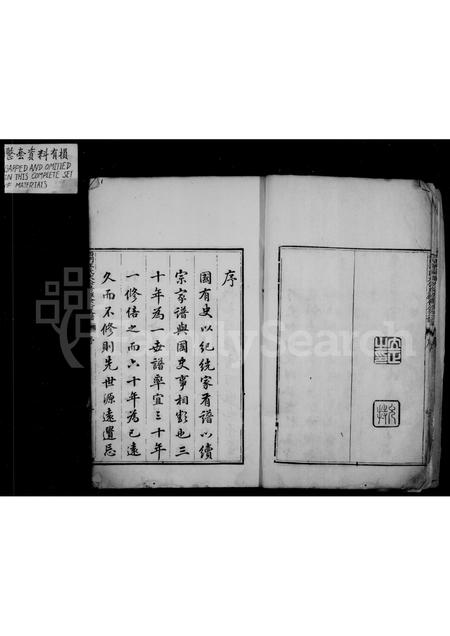 整套資料有損
GAPPED AND OMITTED
IN THIS COMPLETE SET
OF MATERIALS
序
國有史以紀統家有譜以續
宗家譜與國史事相類也三
十年為一世譜率宜三十年
一修倍之而六十年為已遠
久而不修則先世源遠遺忘
FamilySearch